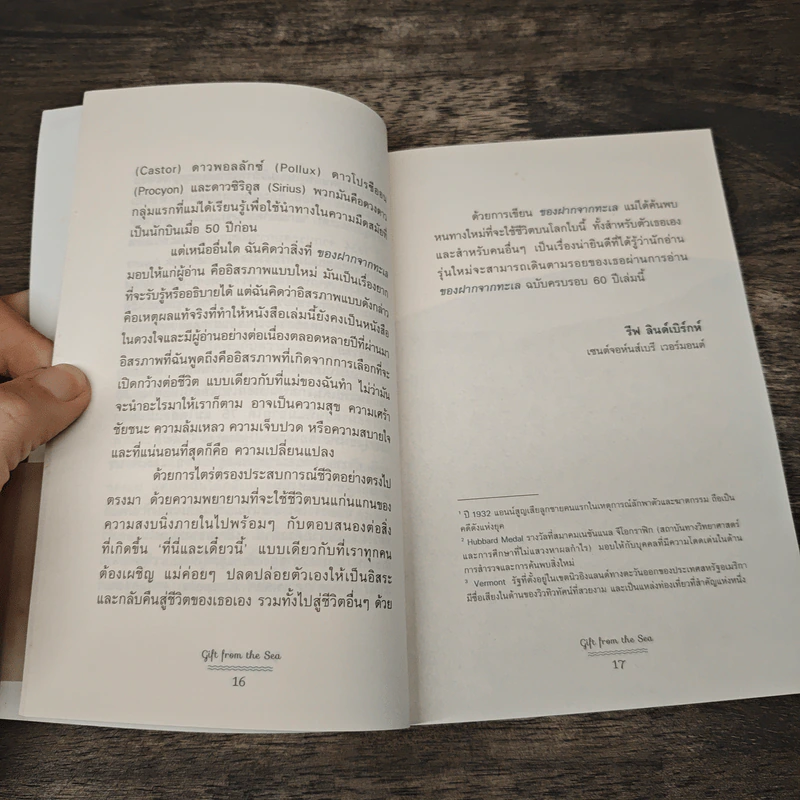 (Castor) ดาวพอลลักซ์ (Pollux) ดาวโปรซีออน
(Procyon) และดาวซิริอุส (Sirius) พวกมันคือดวงดาว
กลุ่มแรกที่แม่ได้เรียนรู้เพื่อใช้นำทางในความมืดสมัยที่
เป็นนักบินเมื่อ 50 ปีก่อน
แต่เหนืออื่นใด ฉันคิดว่าสิ่งที่ ของฝากจากทะเล
มอบให้แก่ผู้อ่าน คืออิสรภาพแบบใหม่ มันเป็นเรื่องยาก
ที่จะรับรู้หรืออธิบายได้ แต่ฉันคิดว่าอิสรภาพแบบดังกล่าว
คือเหตุผลแท้จริงที่ทำให้หนังสือเล่มนี้ยังคงเป็นหนังสือ
ในดวงใจและมีผู้อ่านอย่างต่อเนื่องตลอดหลายปีที่ผ่านมา
อิสรภาพที่ฉันพูดถึงคืออิสรภาพที่เกิดจากการเลือกที่จะ
เปิดกว้างต่อชีวิต แบบเดียวกับที่แม่ของฉันทำ ไม่ว่ามัน
จะนำอะไรมาให้เราก็ตาม อาจเป็นความสุข ความเศร้า
ชัยชนะ ความล้มเหลว ความเจ็บปวด หรือความสบายใจ
และที่แน่นอนที่สุดก็คือ ความเปลี่ยนแปลง
ด้วยการไตร่ตรองประสบการณ์ชีวิตอย่างตรงไป
ตรงมา ด้วยความพยายามที่จะใช้ชีวิตบนแก่นแกนของ
ความสงบนิ่งภายในไปพร้อมๆ กับตอบสนองต่อสิ่ง
ที่เกิดขึ้น 'ที่นี่และเดี๋ยวนี้' แบบเดียวกับที่เราทุกคน
ต้องเผชิญ แม่ค่อยๆ ปลดปล่อยตัวเองให้เป็นอิสระ
และกลับคืนสู่ชีวิตของเธอเอง รวมทั้งไปสู่ชีวิตอื่นๆ ด้วย
Gift from the Sea
16
ด้วยการเขียน ของฝากจากทะเล แม่ได้ค้นพบ
หนทางใหม่ที่จะใช้ชีวิตบนโลกใบนี้ ทั้งสำหรับตัวเธอเอง
และสำหรับคนอื่นๆ เป็นเรื่องน่ายินดีที่ได้รู้ว่านักอ่าน
รุ่นใหม่จะสามารถเดินตามรอยของเธอผ่านการอ่าน
ของฝากจากทะเล ฉบับครบรอบ 60 ปีเล่มนี้
รีฟ ลินด์เบิร์กห์
เซนต์จอห์นส์เบรี เวอร์มอนต์
¹ ปี 1932 แอนน์สูญเสียลูกชายคนแรกในเหตุการณ์ลักพาตัวและฆาตกรรม ถือเป็น
คดีดังแห่งยุค
² Hubbard Medal รางวัลที่สมาคมเนชันแนล จีโอกราฟิก (สถาบันทางวิทยาศาสตร์
และการศึกษาที่ไม่แสวงหาผลกำไร) มอบให้กับบุคคลที่มีความโดดเด่นในด้าน
การสำรวจและการค้นพบสิ่งใหม่
³ Vermont รัฐที่ตั้งอยู่ในเขตนิวอิงแลนด์ทางตะวันออกของประเทศสหรัฐอเมริกา
มีชื่อเสียงในด้านของวิวทิวทัศน์ที่สวยงาม และเป็นแหล่งท่องเที่ยวที่สำคัญแห่งหนึ่ง
Gift from the Sea
17